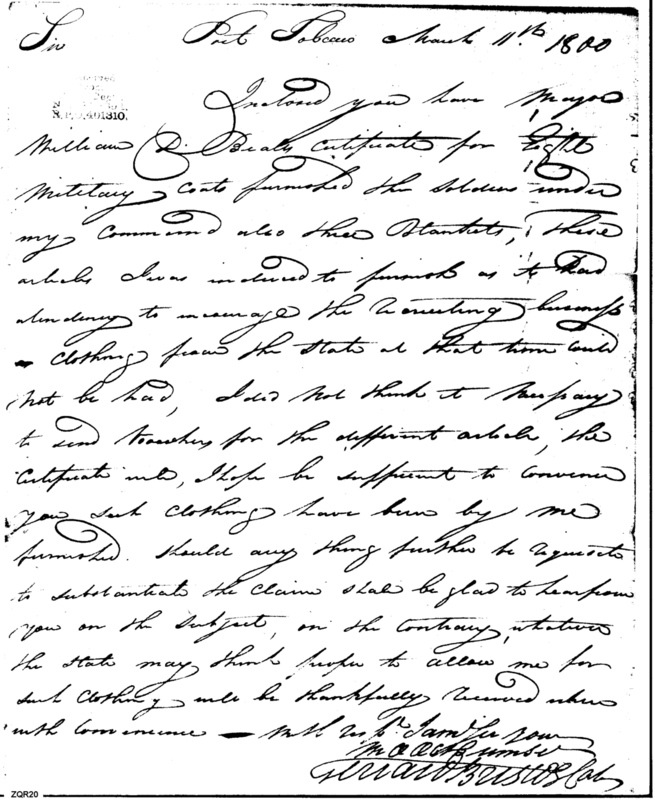 Sir Port Tobacco March 11th 1800
Inclosed you have Major
William D. Beall's Certificate for Eight
Military Coats furnished the soldiers under
my Command also three Blankets, These
articles I was induced to furnish as it had
atendency to incourage the recruiting business
- Clothing from the State at that time could
not be had, I did not think it necessary
to send Vouchers for the different article, the
Certificate will, I hope be sufficient to convince
you such Clothing have been by me
furnished. Should any thing further be requisite
to substantiate the Claim shall be glad to hear from
you on the subject, on the Contrary, whatever
the State may think proper to allow me for
such Clothing will be thankfully received when
with Convenience - with respt. I am Sir your
Mo Obt Humser
401310.
ZQR20